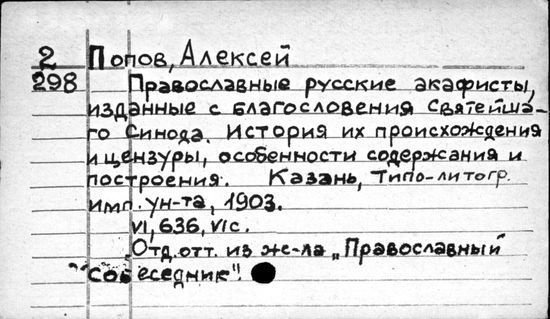 2 Попов, Алексей
298 Православные русские акафисты,
изданные с благословения Святейша-
го Синода. История их происхождения
и цензуры, особенности содержания и
построения. Казань, типо-литогр.
имп. ун-та, 1903.
VI, 636, VIс.
Отд. отт. из же-ла „Православный
"собеседник".